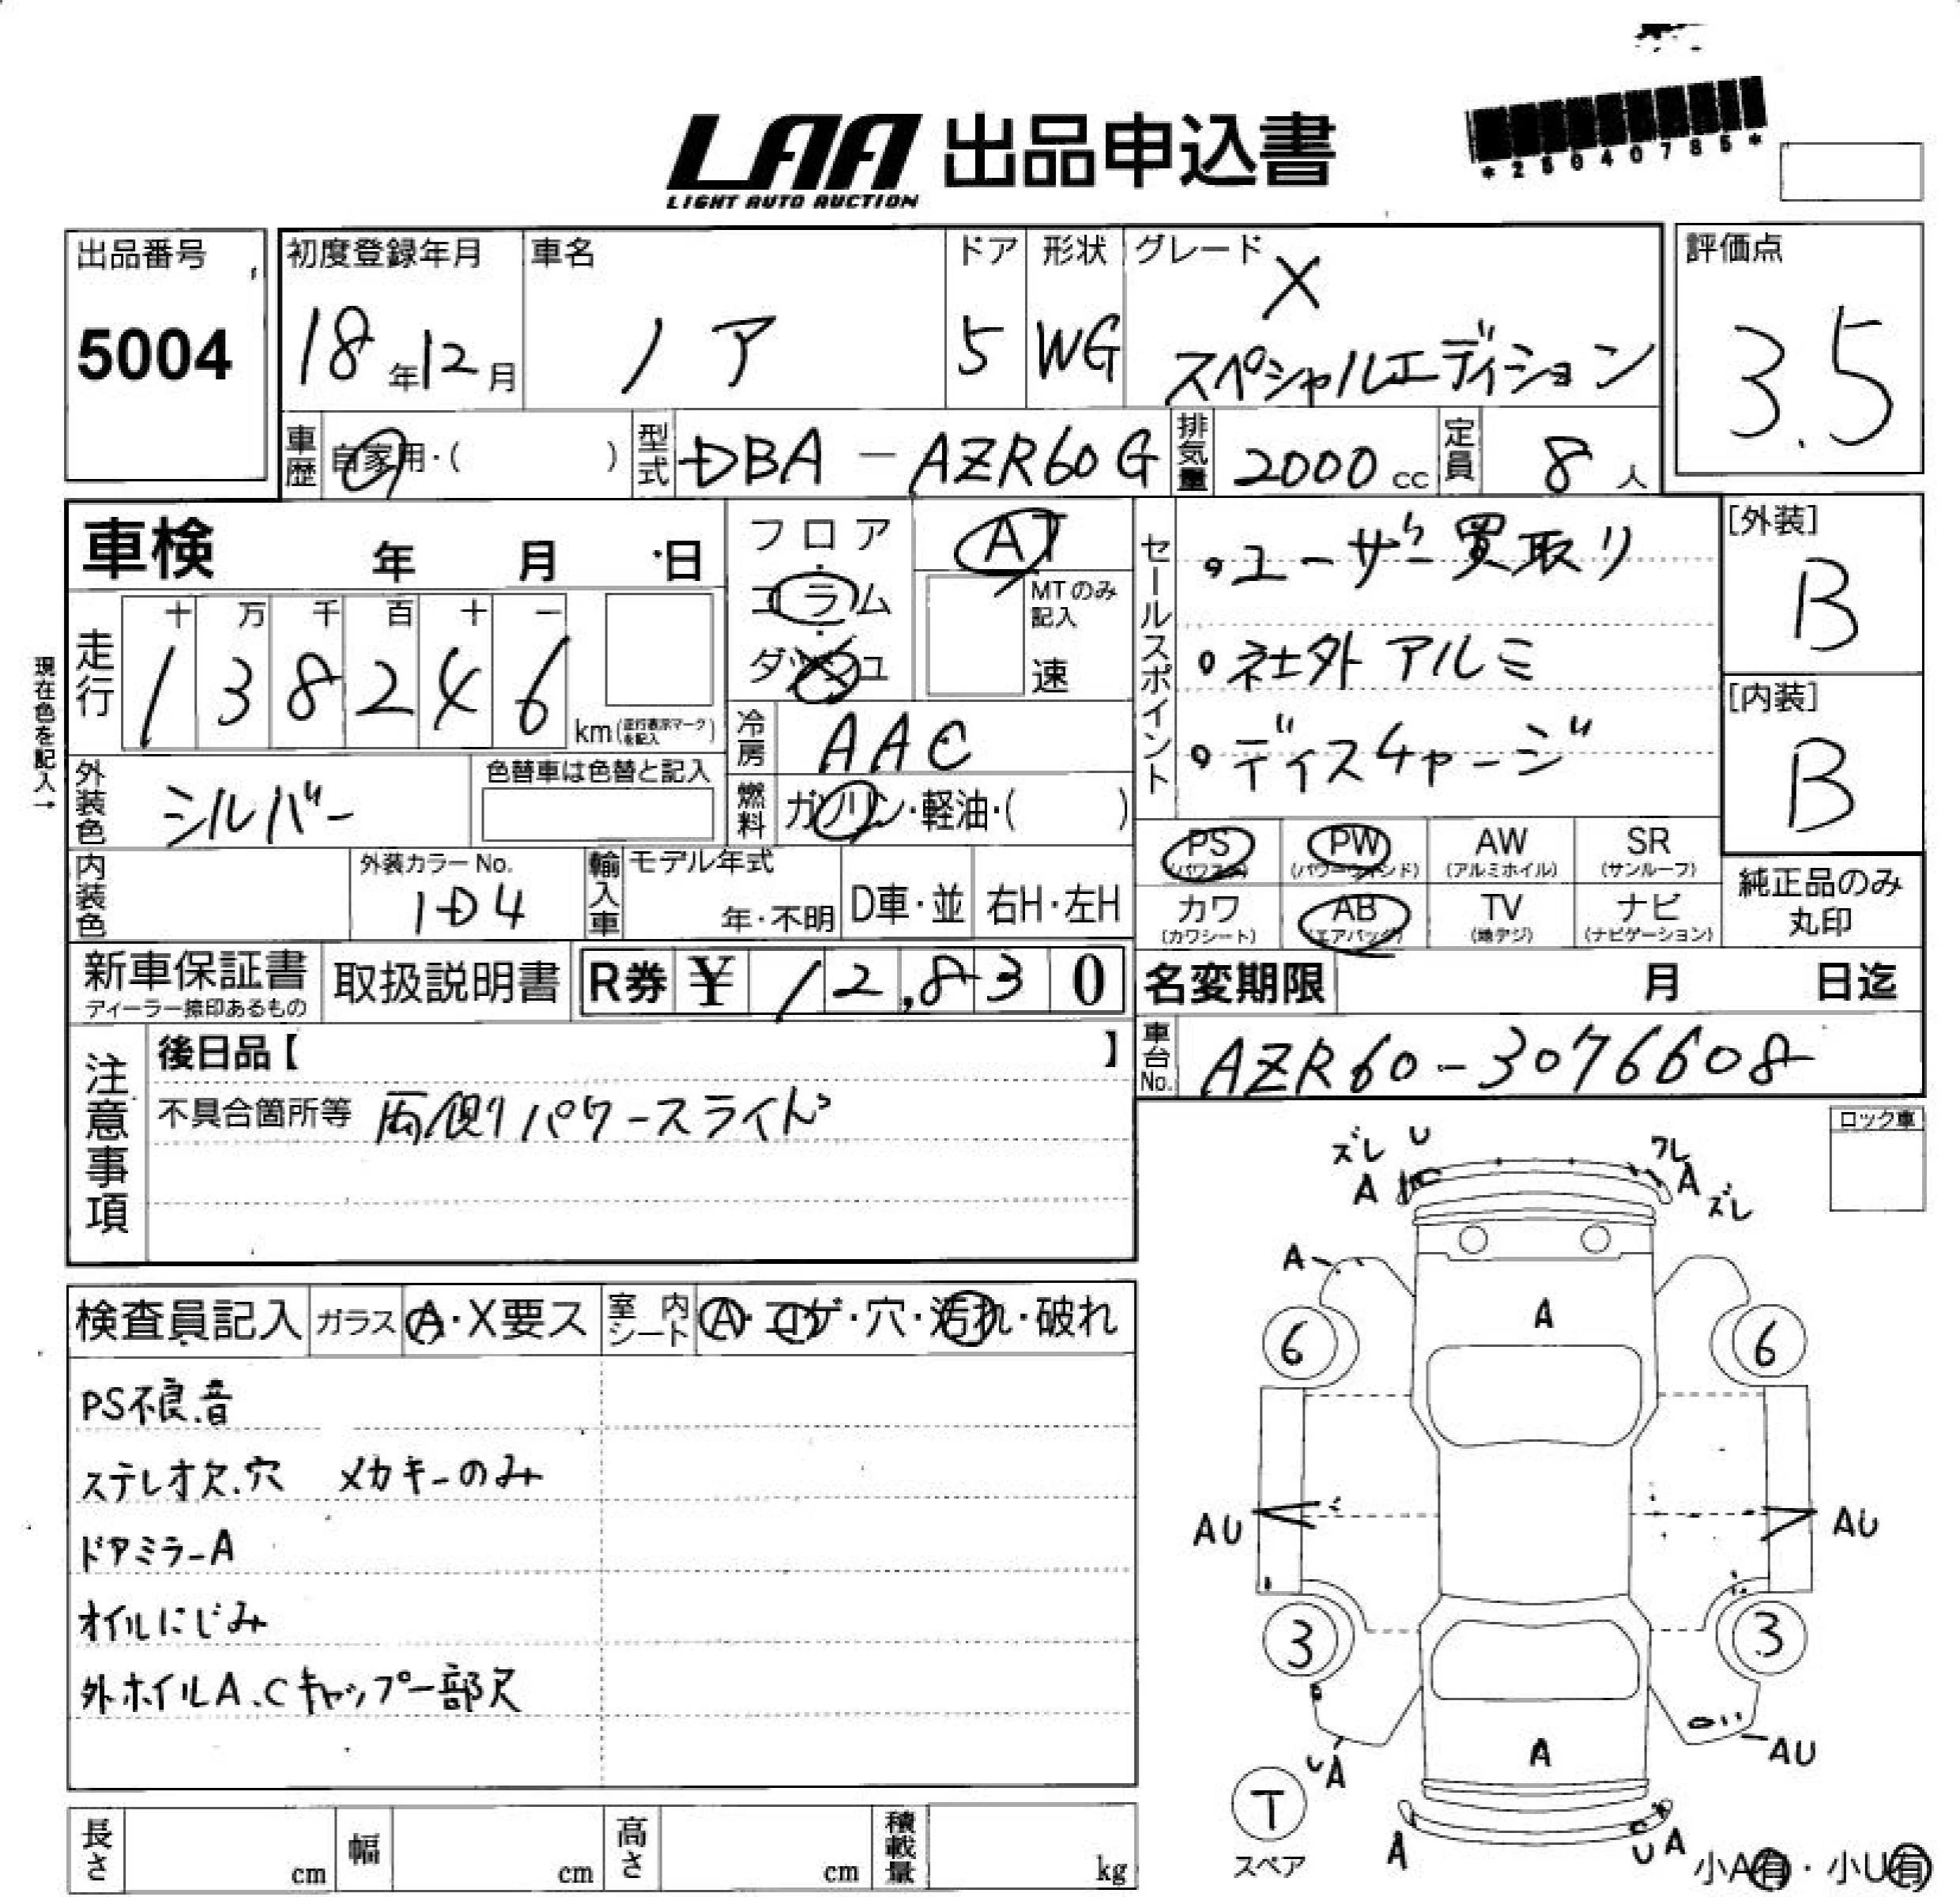 LAA 出品申込書
LIGHT AUTO AUCTION
*25040785*
出品番号
5004
初度登録年月
18年12月
車名
ノア
ドア
5
形状
WG
グレード
X
スペシャルエディション
評価点
3.5
車歴 自家用・( )
型式 DBA-AZR60G
排気量 2000cc
定員 8人
車検 年 月 日
フロア
・
コラム
・
ダッシュ
AT
MTのみ記入
速
セールスポイント
・ユーザー買取り
・社外アルミ
・ディスチャージ
[外装]
B
[内装]
B
現在色を記入→
走行
十 万 千 百 十 一
1 3 8 2 4 6
km(走行表示マークを記入)
冷房 AAC
外装色 シルバー
色替車は色替と記入
燃料 ガソリン・軽油・( )
PS (パワステ)
PW (パワーウィンド)
AW (アルミホイル)
SR (サンルーフ)
カワ (カワシート)
AB (エアバッグ)
TV (地デジ)
ナビ (ナビゲーション)
純正品のみ
丸印
内装色
外装カラーNo.
1D4
輸入車
モデル年式
年・不明
D車・並
右H・左H
新車保証書
ディーラー捺印あるもの
取扱説明書
R券 ¥ 12,830
名変期限 月 日迄
車台No. AZR60-3076608
注意事項
後日品【 】
不具合箇所等 両側パワースライド
ロック車
検査員記入
ガラス A・X要ス
室内シート A・コゲ・穴・汚れ・破れ
PS不良.音
ステレオ欠.穴 メカキーのみ
ドアミラーA
オイルにじみ
外ホイルA.Cキャップ一部欠
ズレ U
A
ワレ
A
ズレ
A
A
6
6
AU
AU
3
3
UA
A
AU
T
スペア
A
UA
小A有・小U有
長さ cm
幅 cm
高さ cm
積載量 kg